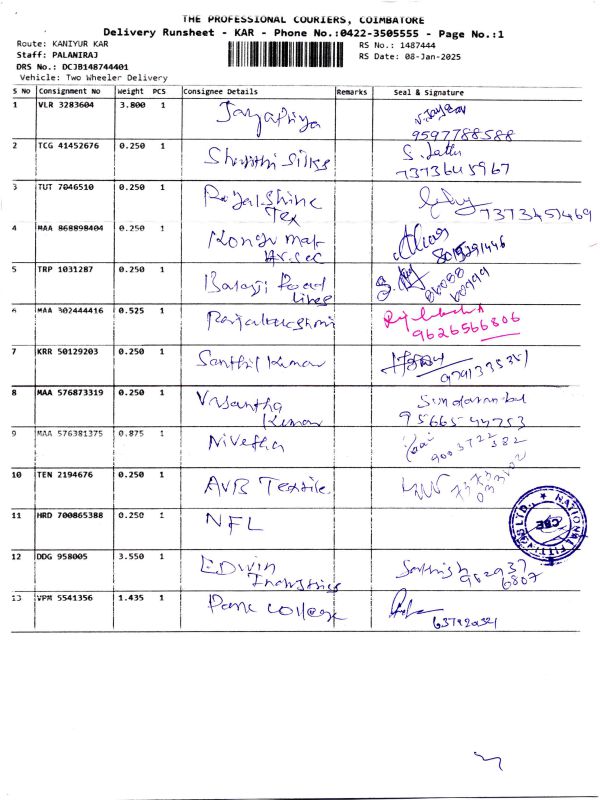 THE PROFESSIONAL COURIERS, COIMBATORE
Delivery Runsheet - KAR - Phone No.:0422-3505555 - Page No.:1
Route: KANIYUR KAR
RS No.: 1487444
Staff: PALANIRAJ
RS Date: 08-Jan-2025
DRS No.: DCJB148744401
Vehicle: Two Wheeler Delivery
S No Consignment No Weight PCS Consignee Details Remarks Seal & Signature
1 VLR 3283604 3.800 1 Jayapriya
9597788588
2 TCG 41452676 0.250 1 Shrinithi Silks
7373645967
3 TUT 7046510 0.250 1 Royal Shine
Tex 7373451469
4 MAA 868898404 0.250 1 Kongu mat
Hr.sec 8015291446
5 TRP 1031287 0.250 1 Balaji Road
Lines
86088
60999
6 MAA 302444416 0.525 1 Rajalakshmi
9626566806
7 KRR 50129203 0.250 1 Santhil Kumar
8 MAA 576873319 0.250 1 Vasantha
Kumar
9566544753
9 MAA 576381375 0.875 1 Nivetha
9003722382
10 TEN 2194676 0.250 1 AVB Textile
7373
033102
11 HRD 700865388 0.250 1 NFL
NATIONAL FITTINGS LTD.,
CBE
12 DDG 958005 3.550 1 EDwin
Industries
Sathish
982937
6807
13 VPM 5541356 1.435 1 Park college